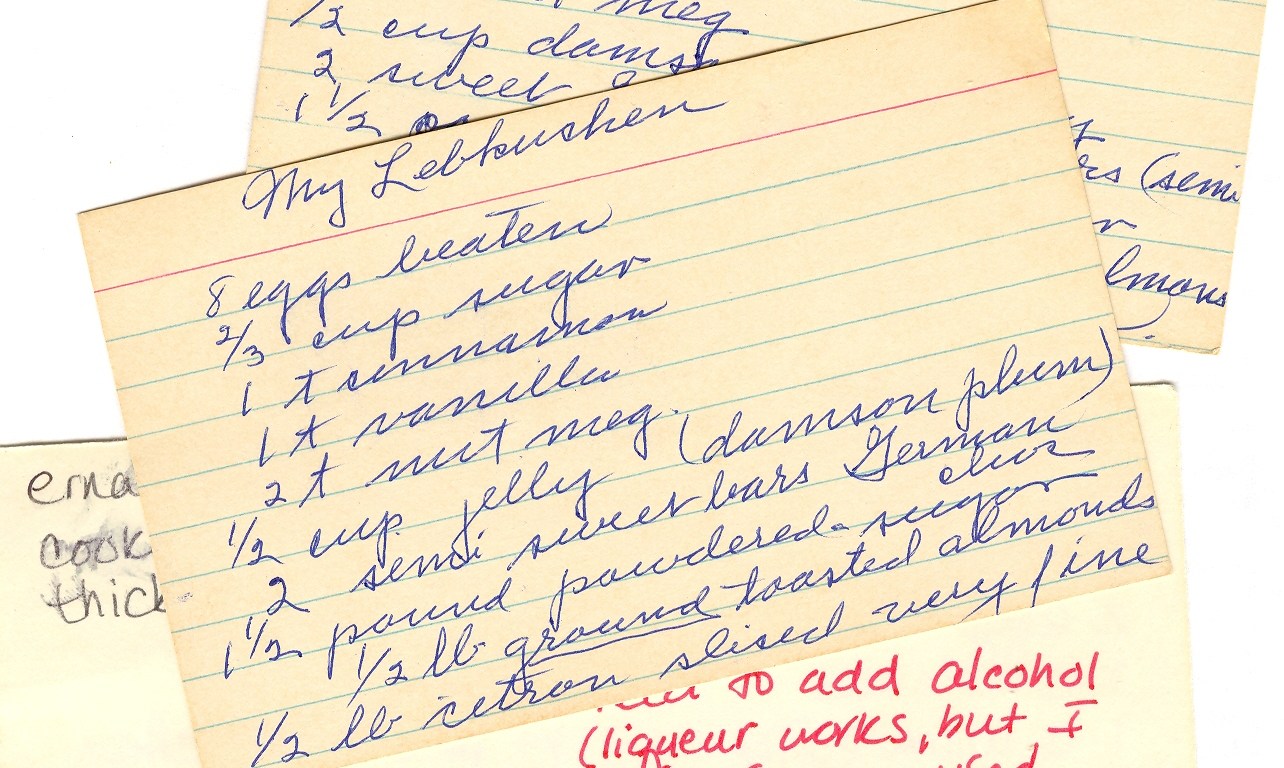 meg
1/2 cup damso
2 sweet
1 1/2
rs (semi
lmons
My Lebkushen
8 eggs beaten
2/3 cup sugar
1 t cinnamon
1 t vanilla
2 t nut meg.
1/2 cup jelly (damson plum)
2 semi sweet bars German
choc
1 1/2 pound powdered sugar
1/2 lb ground toasted almonds
1/2 lb citron slised very fine
erna
cook
thick
to add alcohol
(liqueur works, but I